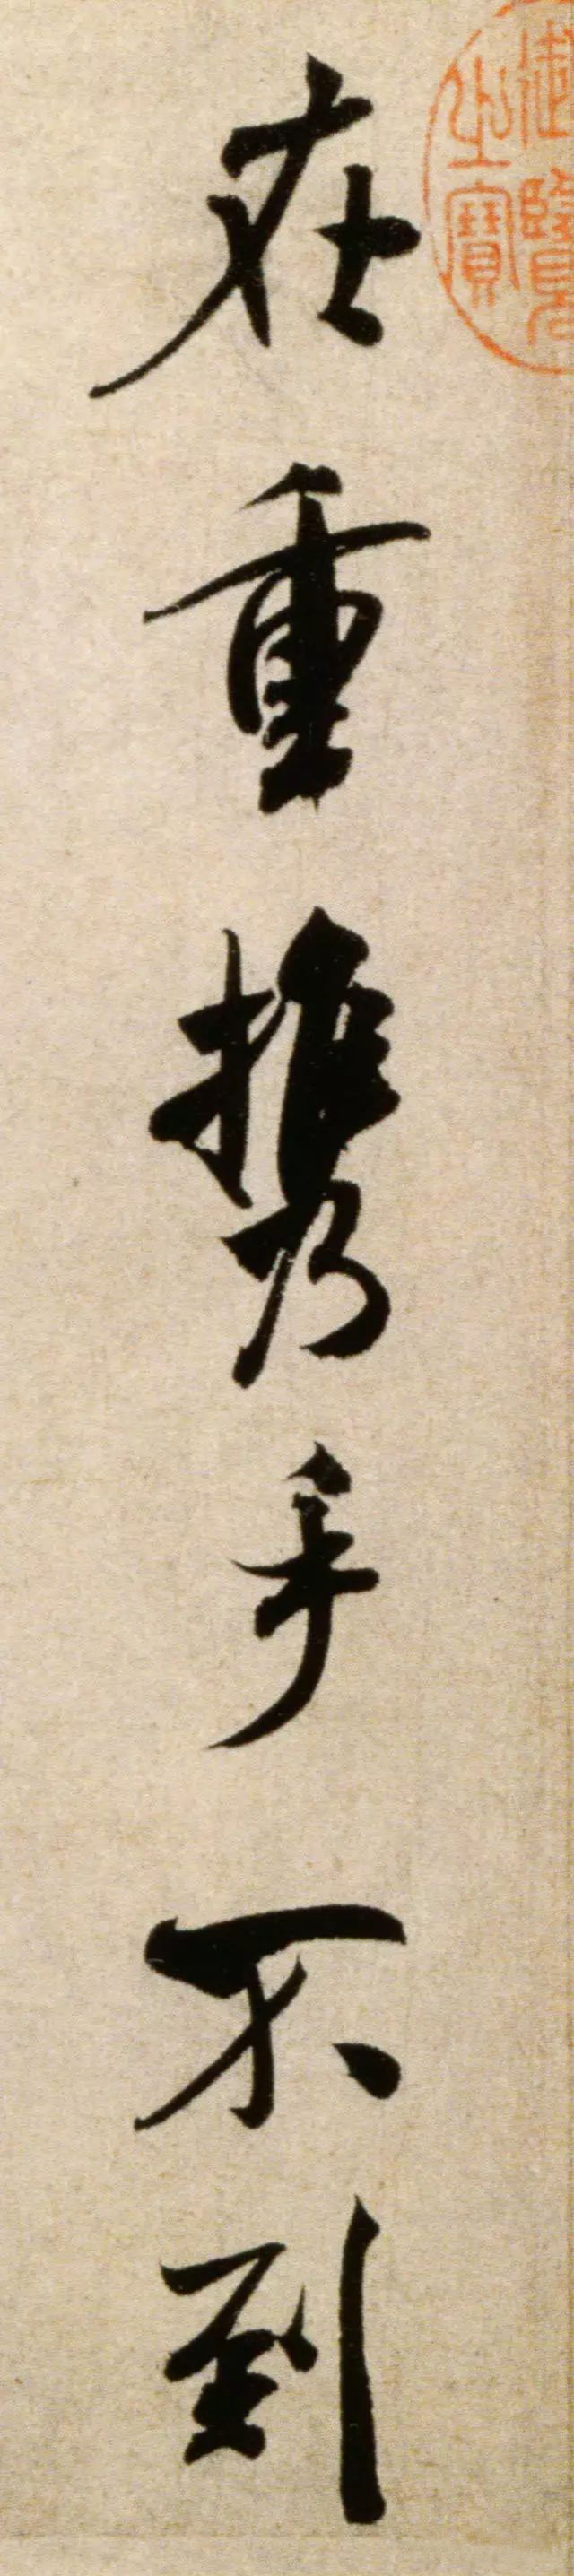 御覽
之寶
在重携手不到